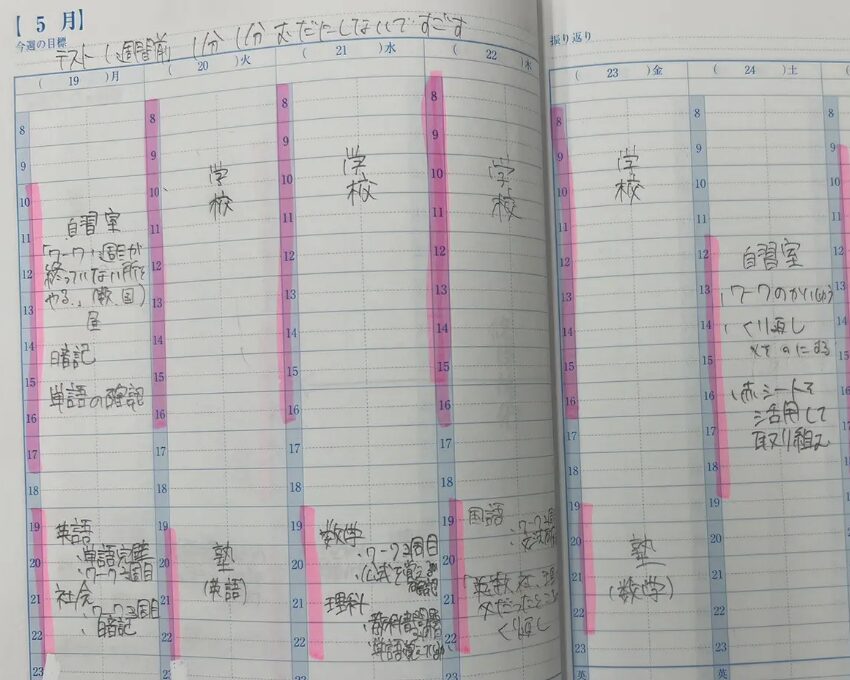 【 5 月】
今週の目標
テスト1週間前 1分1分むだにしないですごす
振り返り
( 19 )月
( 20 )火
( 21 )水
( 22 )木
( 23 )金
( 24 )土
8
9
10
11
12
13
14
15
16
17
18
19
20
21
22
23
自習室
「ワーク1週目が
終っていない所を
やる。(数、国)
昼
暗記
単語の確認
英語
・単語完璧
・ワーク2周目
社会
・ワーク2周目
・暗記
8
9
10
11
12
13
14
15
16
17
18
19
20
21
22
23
学校
塾
(英語)
8
9
10
11
12
13
14
15
16
17
18
19
20
21
22
23
学校
数学
・ワーク2周目
・公式を覚え
確認
理科
・教科書
・単語
8
9
10
11
12
13
14
15
16
17
18
19
20
21
22
学校
国語
・ワーク2周
くり返し
8
9
10
11
12
13
14
15
16
17
18
19
20
21
22
23
英
学校
塾
(数学)
8
9
10
11
12
13
14
15
16
17
18
19
20
21
22
23
英
自習室
・ワークの
・くり返し
・赤シートを
活用して
取り組む